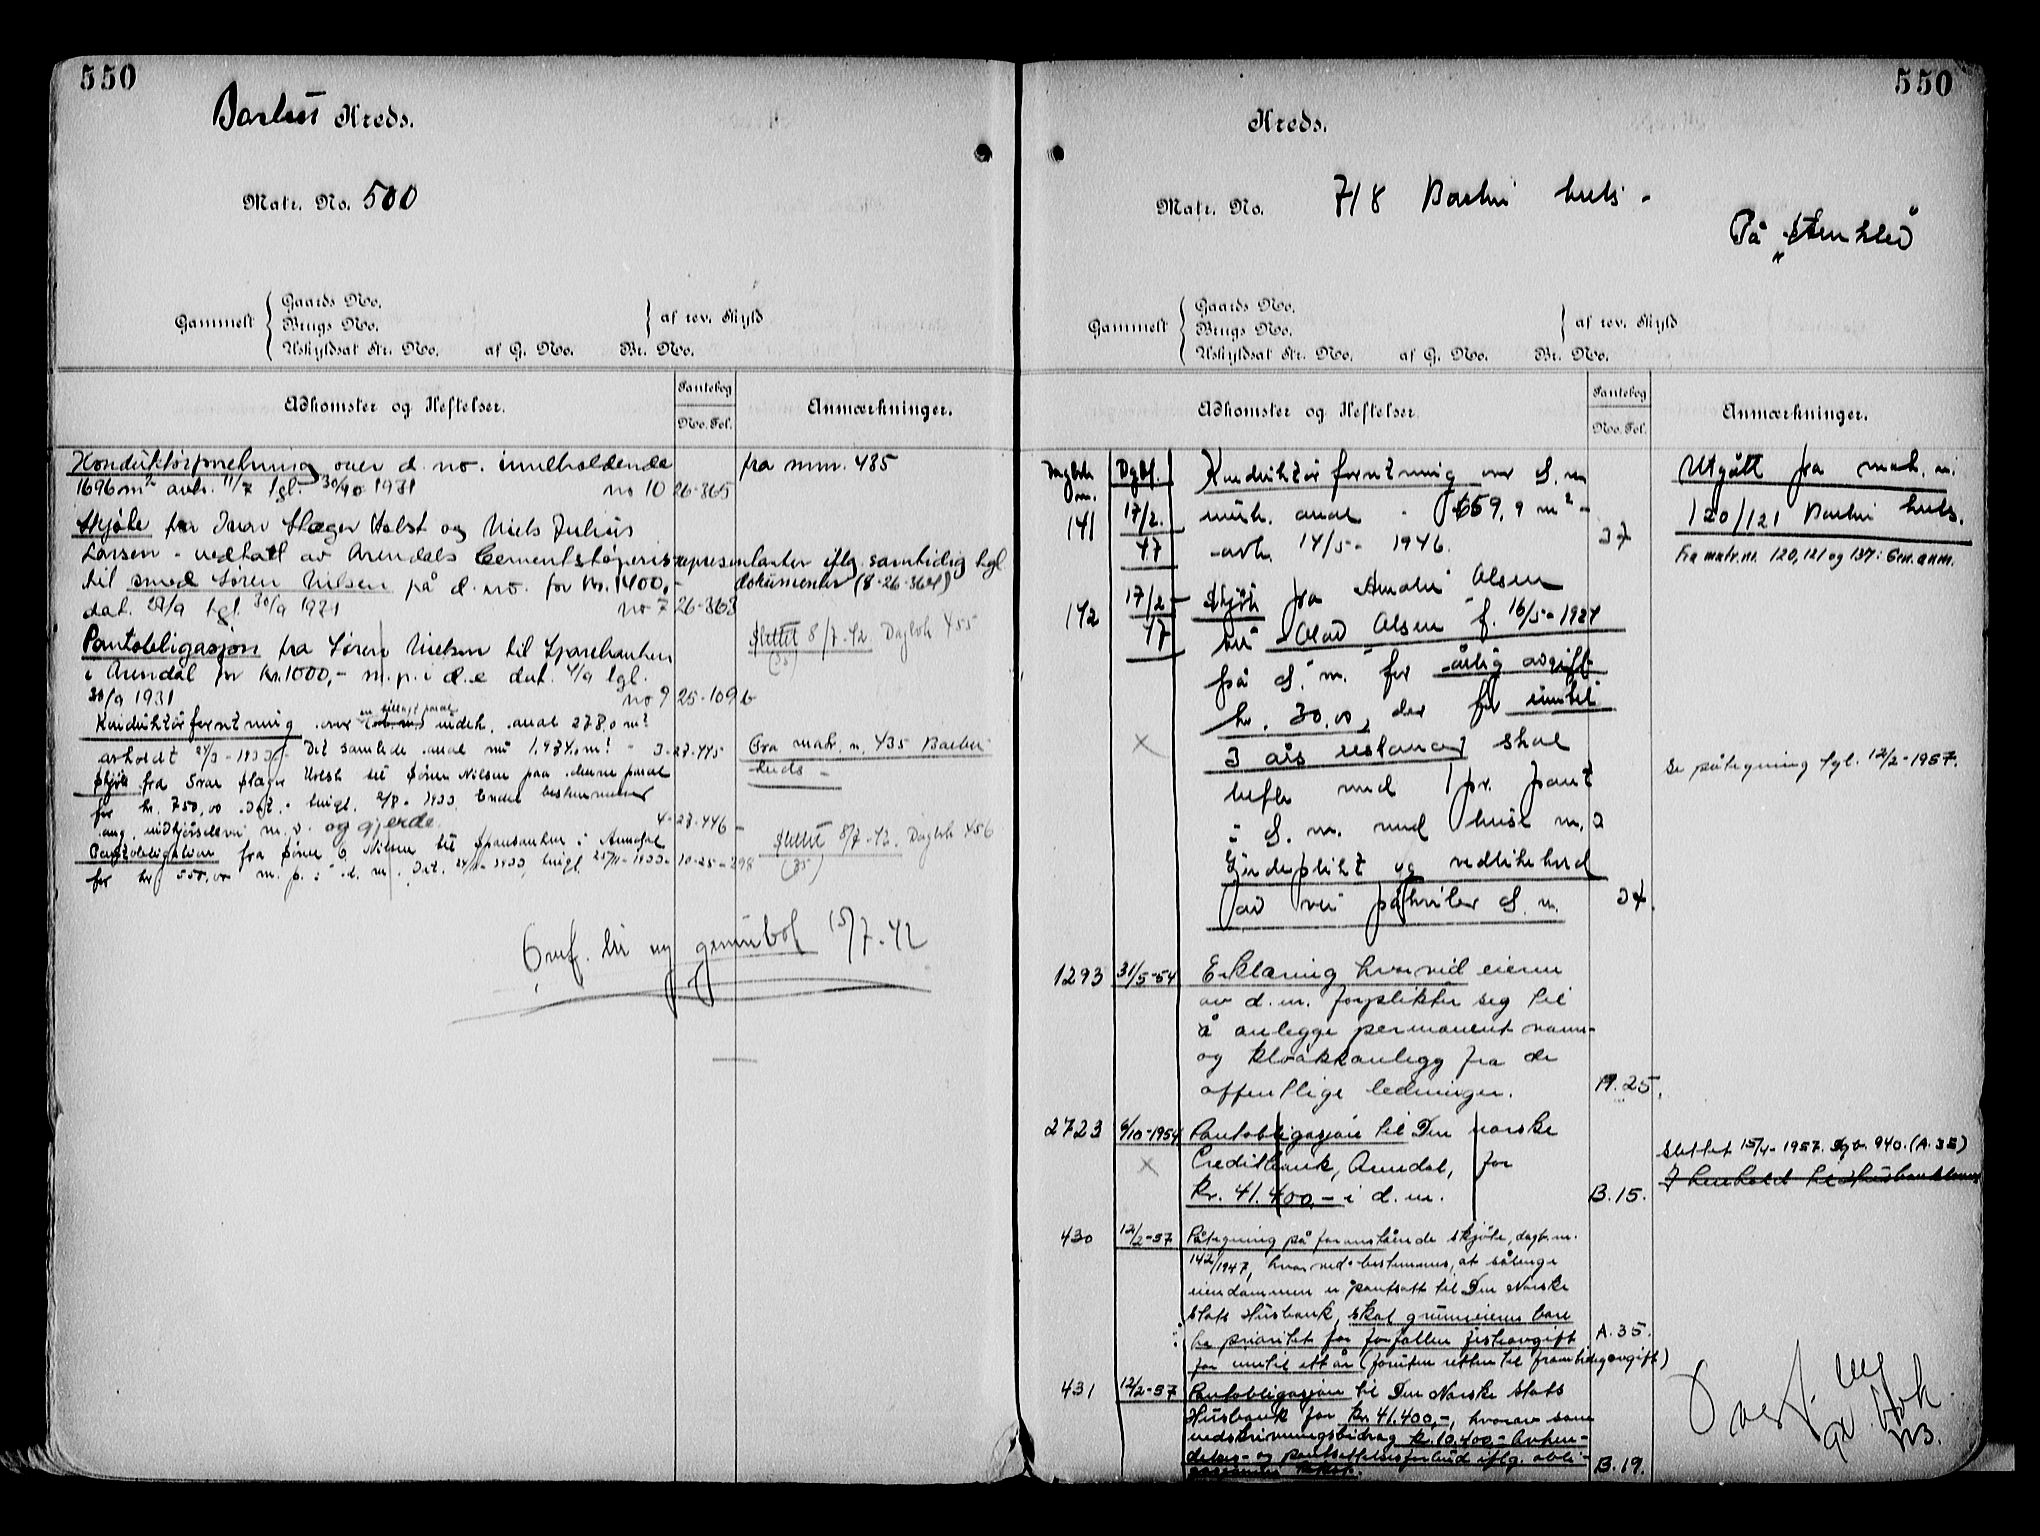 550
Barbu Kreds.
Matr. No. 500
Gammelt
Gaards No.
Brugs No.
Uskyldsat Str. No. af G. No. Br. No.
af rev. Skyld
Adkomster og Heftelser.
Pantebog
No. Fol.
Anmærkninger.
Konduktørforretning over d. no. inneholdende fra mnr. 435
1696 m² avh. 11/7 tgl. 30/9 1931 no 10 26-365
Skjøte fra Ivar Slæger Holst og Niels Julius
Larsen - vedtatt av Arendals Cementstøperis representanter iflg. samtidig tgl.
til smed Søren Nielsen på d. no. for kr. 1400,- dokumenter (8-26-364)
dat. 29/9 tgl. 30/9 1931 no 7 26-363
Pantobligasjon fra Søren Nielsen til Sparebanken
i Arendal for kr. 1000,- m. p. i d. e dat. 4/9 tgl.
30/9 1931 no 9 25-109 b
Slettet 8/7-42. Dagbok 455
(35)
Konduktørforretning over en tillagt parsel indeh. areal 278,0 m²
avholdt 24/3-1933. Det samlede areal nu 1.974,0 m² - 3-27-445
Fra matr. n. 435 Barbu
kreds -
Skjøte fra Ivar Slæger Holst til Søren Nilsen paa denne parsel
for kr. 750,00 Dat. - tingl. 2/8-1933. Endel bestemmelser
ang. utkjørselsvei m. v. og gjerde 4-27-446 -
Pantobligation fra Søren C. Nilsen til Sparebanken i Arendal
for kr 550,00 m. p. i d. m. Dat. 24/11-1933, tingl. 25/11-1933- 10-25-298
Slettet 8/7-42. Dagbok 456
(35)
Overf. til ny grunnbok 15/7-42
550
Kreds.
Matr. No. 718 Barbu kreds -
På "Stenklev"
Gammelt
Gaards No.
Brugs No.
Uskyldsat Str. No. af G. No. Br. No.
af rev. Skyld
Adkomster og Heftelser.
Pantebog
No. Fol.
Anmærkninger.
Dagbok n. Dgbf.
141 17/2-47 Konduktørforretning over d. n.
innh. areal - 659,9 m² -
avh. 14/5-1946. 37
Utgått fra matr. n.
120/121 Barbu kreds.
Fra matr. nr. 120, 121 og 137: Gen. anm.
142 17/2-47 Skjøte fra Amalie Olsen
til Olav Olsen f. 16/5-1924
på d. n. for årlig avgift
kr. 30,00, der for inntil
3 års restanser skal
hefte med 1 pr. pant
i d. n. med huse m. 2
Gjerdeplikt og vedlikehold
av vei påhviler d. n. 34.
Se påtegning tgl. 12/2-1957.
1293 31/5-54 Erklæring hvorved eieren
av d. m. forplikter seg til
å anlegge permanent vann-
og kloakkanlegg fra de
offentlige ledninger. A. 25.
2723 6/10-1954 Pantobligasjon til Den norske
Creditbank, Arendal, for
kr. 41.400,- i d. m. B. 15.
Slettet 15/4-1957. Dgb. 940. (A. 35)
430 12/2-57 Påtegning på foranstående skjøte, dagb. nr.
142/1947, hvorved bestemmes, at sålenge
eiendommen er pantsatt til Den Norske
Stats Husbank, skal grunneieren bare
ha prioritet for forfallen festeavgift A. 35.
for inntil ett år (foruten retten til framtidig avgift)
431 12/2-57 Pantobligasjon til Den Norske Stats
Husbank for kr. 41.400,-, hvorav som
nedskrivningsbidrag kr. 10.400,- Avhen-
delses- og pantsettelsesforbud iflg. obli-
B. 19.
Overf. ny